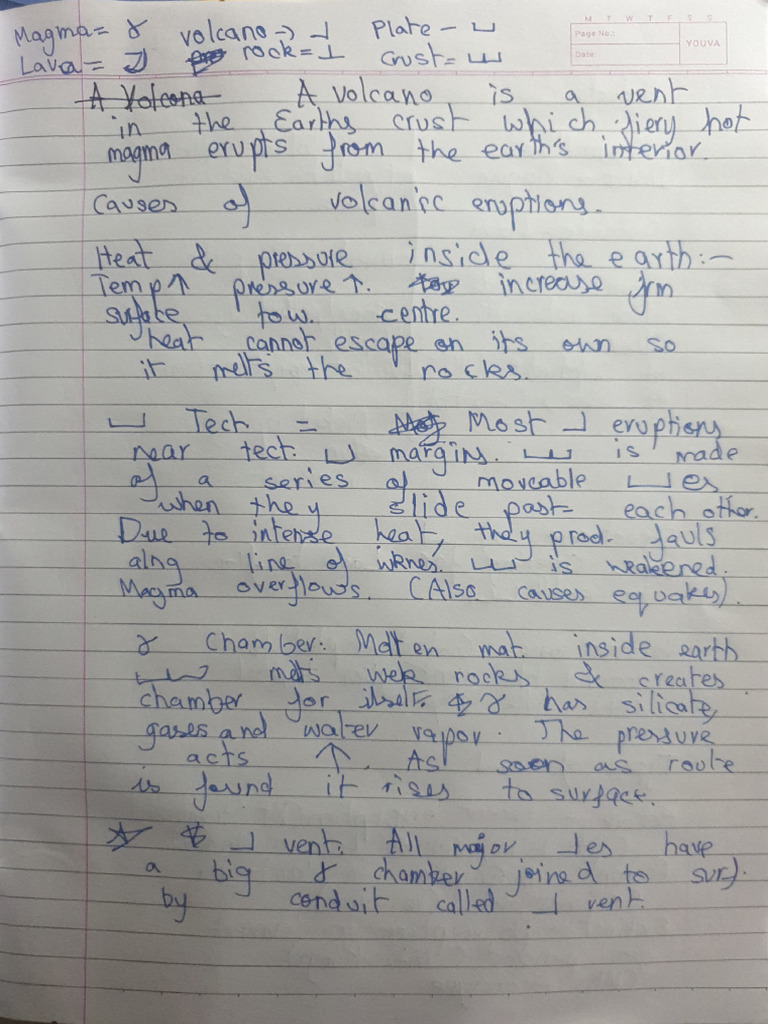 M T W T F S S
Page No.:
Date:
YOUVA
Magma = ɣ volcano → ⅃ Plate - ⎵
Lava = rock = ⊥ Crust = ⨆⨆
A Volcano A volcano is a vent
in the Earths crust which fiery hot
magma erupts from the earth's interior.
Causes of volcanic eruptions.
Heat & pressure inside the earth:-
Temp ↑ pressure ↑. increase frm
surface tow. centre.
heat cannot escape on its own so
it melts the rocks.
⎵ Tech = Most ⅃ eruptions
near tect. ⎵ margins. ⨆⨆ is made
of a series of moveable ⎵es
when they slide past each other.
Due to intense heat, they prod. fauls
alng line of wknes. ⨆⨆ is weakened.
Magma overflows. (Also causes equakes).
ɣ Chamber: Molten mat. inside earth
⨆⨆ melts wek rocks & creates
chamber for itself. ɣ has silicate,
gases and water vapor. The pressure
acts ↑. As soon as route
is found it rises to surface.
☆ ⅃ vent: All major ⅃es have
a big ɣ chamber joined to surf.
by conduit called ⅃ vent.